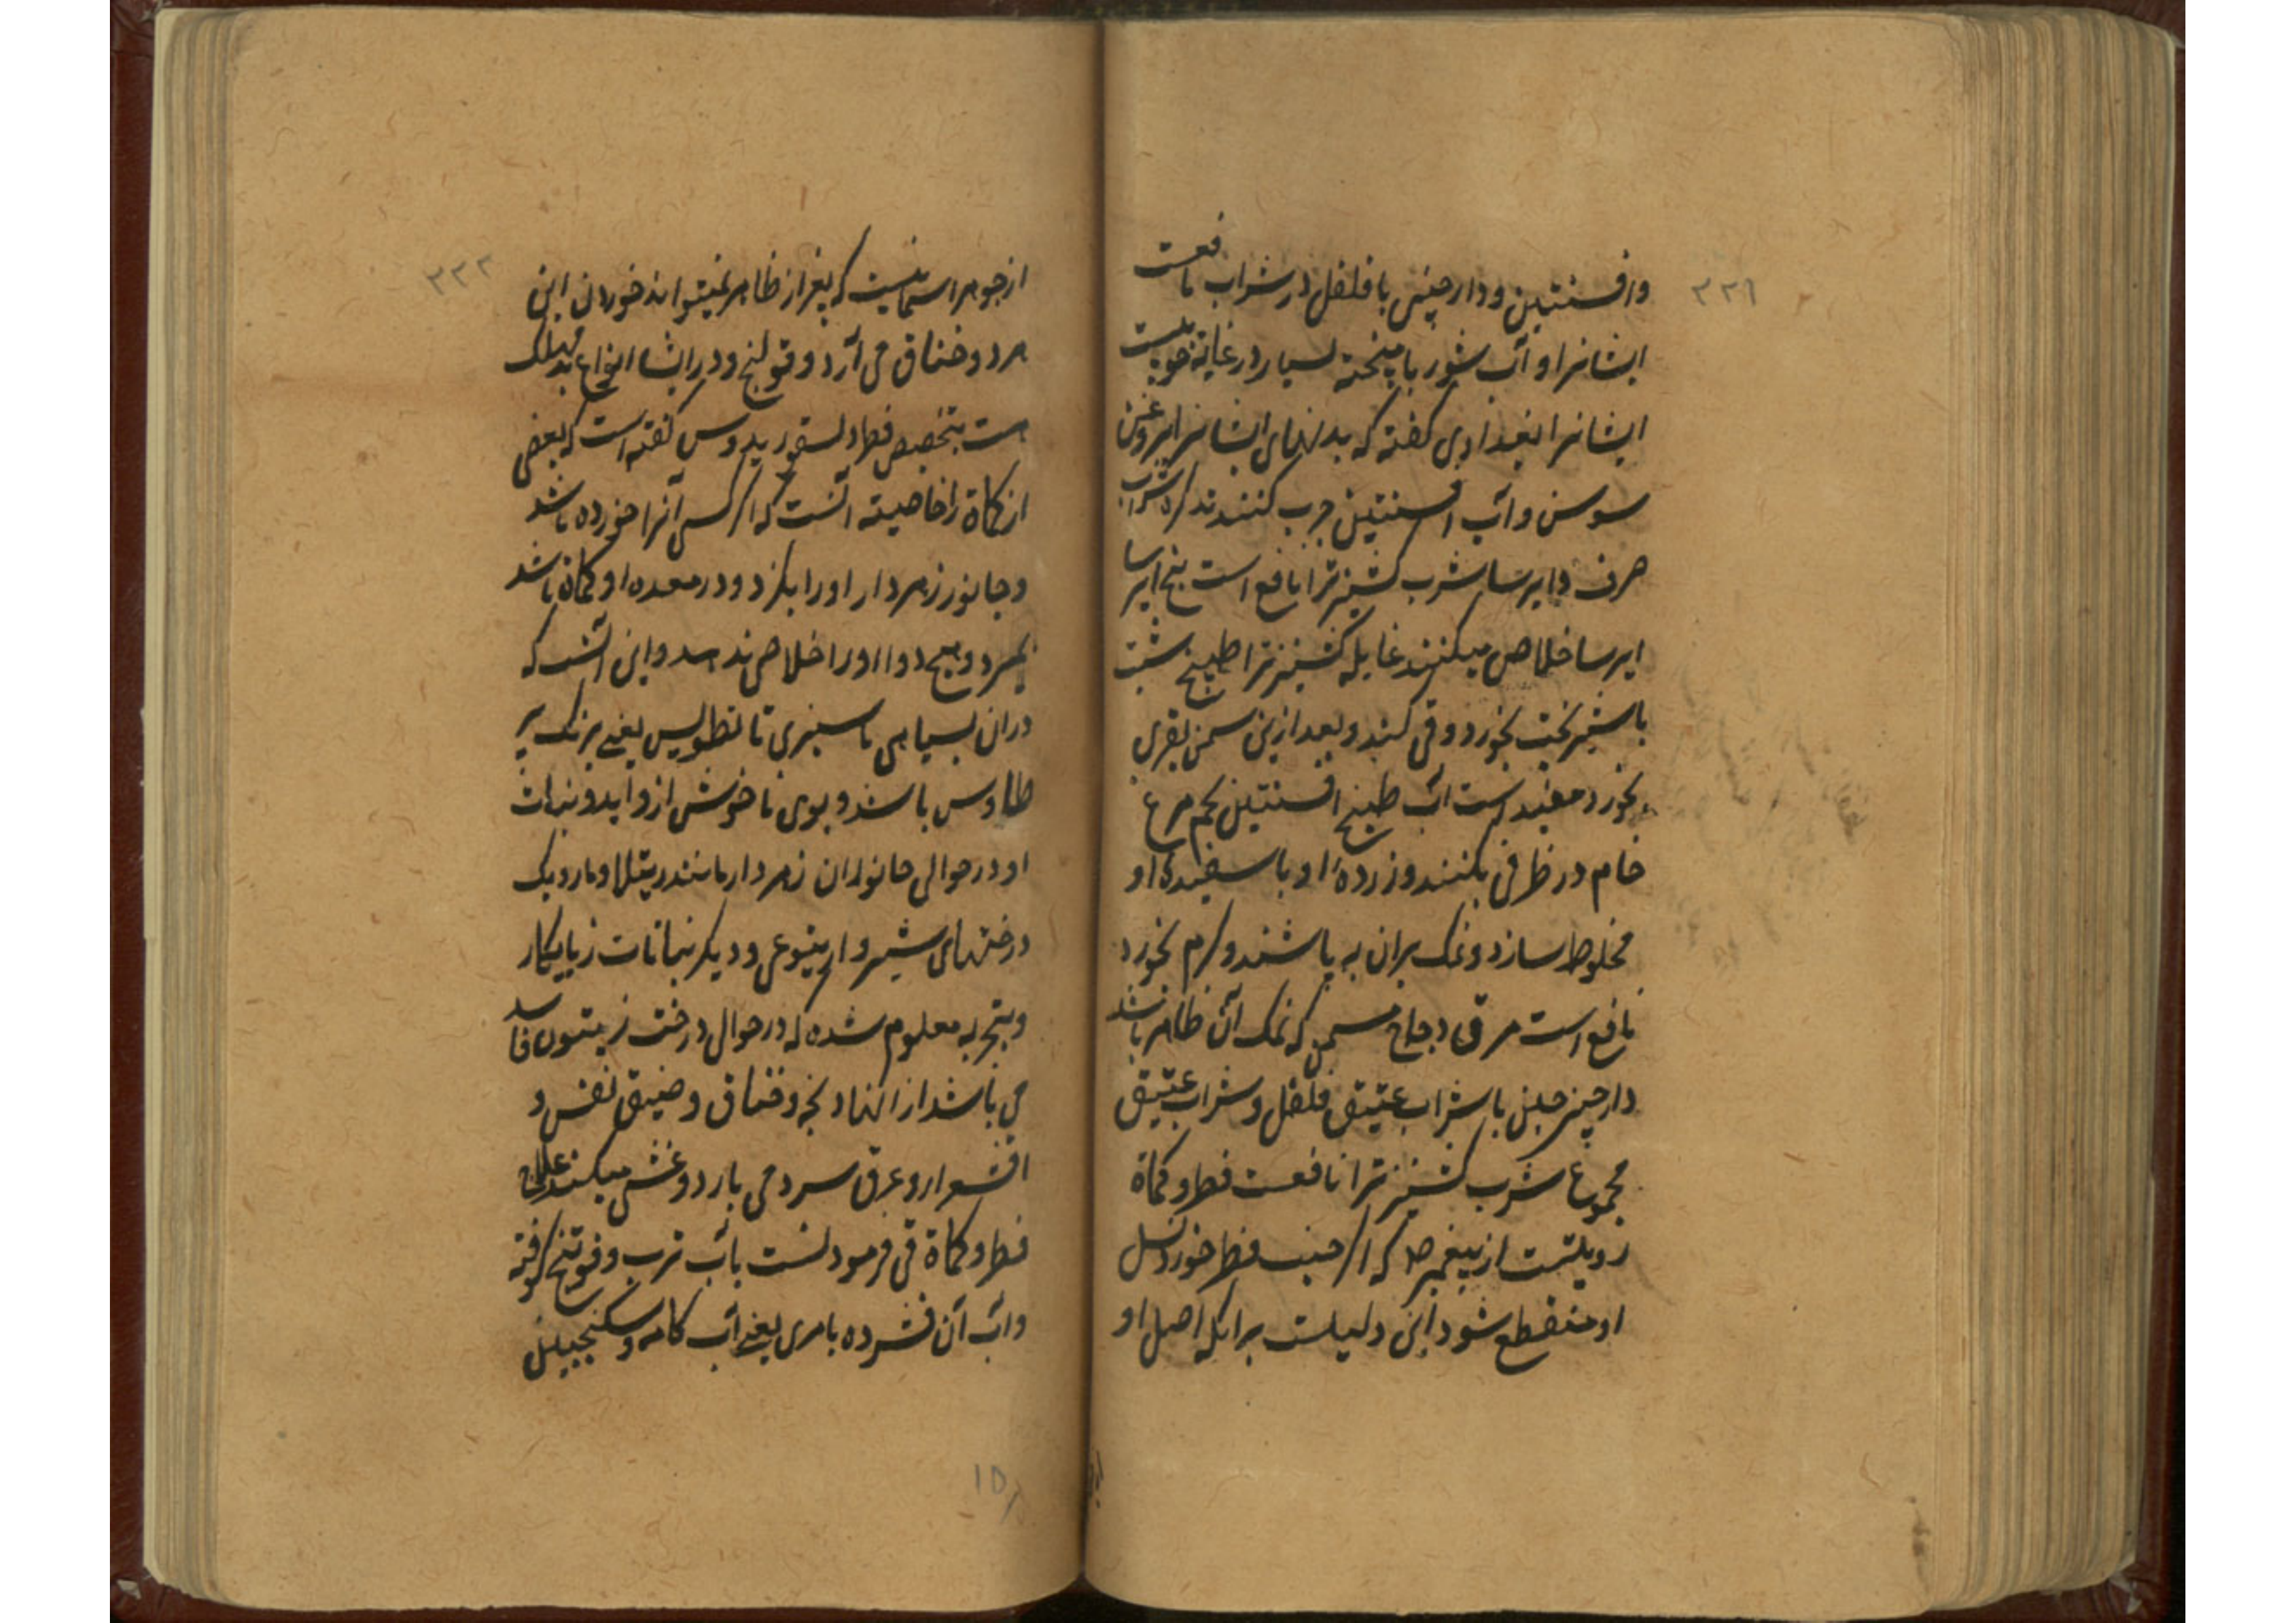 ۳۳۱
وافسنتین و دارچینی با فلفل در شراب نافعست
ایشانرا و آب شور با پنخته بسیار در غایة خوبیست
ایشانرا بغدادی گفته که بدنهای ایشانرا بروغن
سوسن و آب افسنتین چرب کنند تذکره شراب
صرف و ایرسا بشرب کشنیز ترا نافع است بیخ ایرسا
ایرسا خلاص میکنند غایله کشنیز ترا طبیخ شبت
باشیر پخت بخورد و قی کند و بعد ازین سمن بقری
بخورد مفید است آب طبیخ افسنتین تخم مرغ
خام در ظرفی بکنند و زرده او با سفیده او
مخلوط سازد و نمک بران به پاشند و کرم بخورد
نافع است مرق دجاج مسمن که نمک آن ظاهر باشد
دارچینی با شراب عتیق فلفل و شراب عتیق
مجموع شرب کشنیز ترا نافعست فطر و کماة
رویلتست از پیغمبر ص که اکر جنب فطر خورد نسل
او منقطع شود این دلیلست برانکه اصل او
۳۳۲
از جوهر اسمانیست که بغیر از ظاهر نمیتواند خوردن این
هر دو خناق می آرد و قولنج و در ایشا انواع بد مهلک
هست بتخصیص فطر دلسقوریدوس کفته است که بعضی
از کماة را خاصیته آنست که اکر کسی آنرا خورده باشد
و جانور زهردار او را بکزد و در معده او کماة باشد
بمیرد و هیچ دوا او را خلاص ندهد و این آنست که
دران بسیاهی تا سبزی تا تطویس یعنی برنک پر
طاوس باشد و بوی ناخوش ازو آید و نبات
او در حوالی جانوران زهردار مانند رتیلا و مار و یک
درختهای شیر وار یتوعی و دیکر نباتات زیانکار
و بتجربه معلوم شده که در حوال درخت زیتون فاسد
می باشد از انها ذبحه و خناق و ضیق نفس و
اقشعرار و عرق سرد می بارد و غشی میکنند علاج
فطر و کماة قی فرمودنست باب ترب و فوتنج کوفته
و آب آن فشرده بامری یعنی آب کامه و سکنجبین
۱۵۸